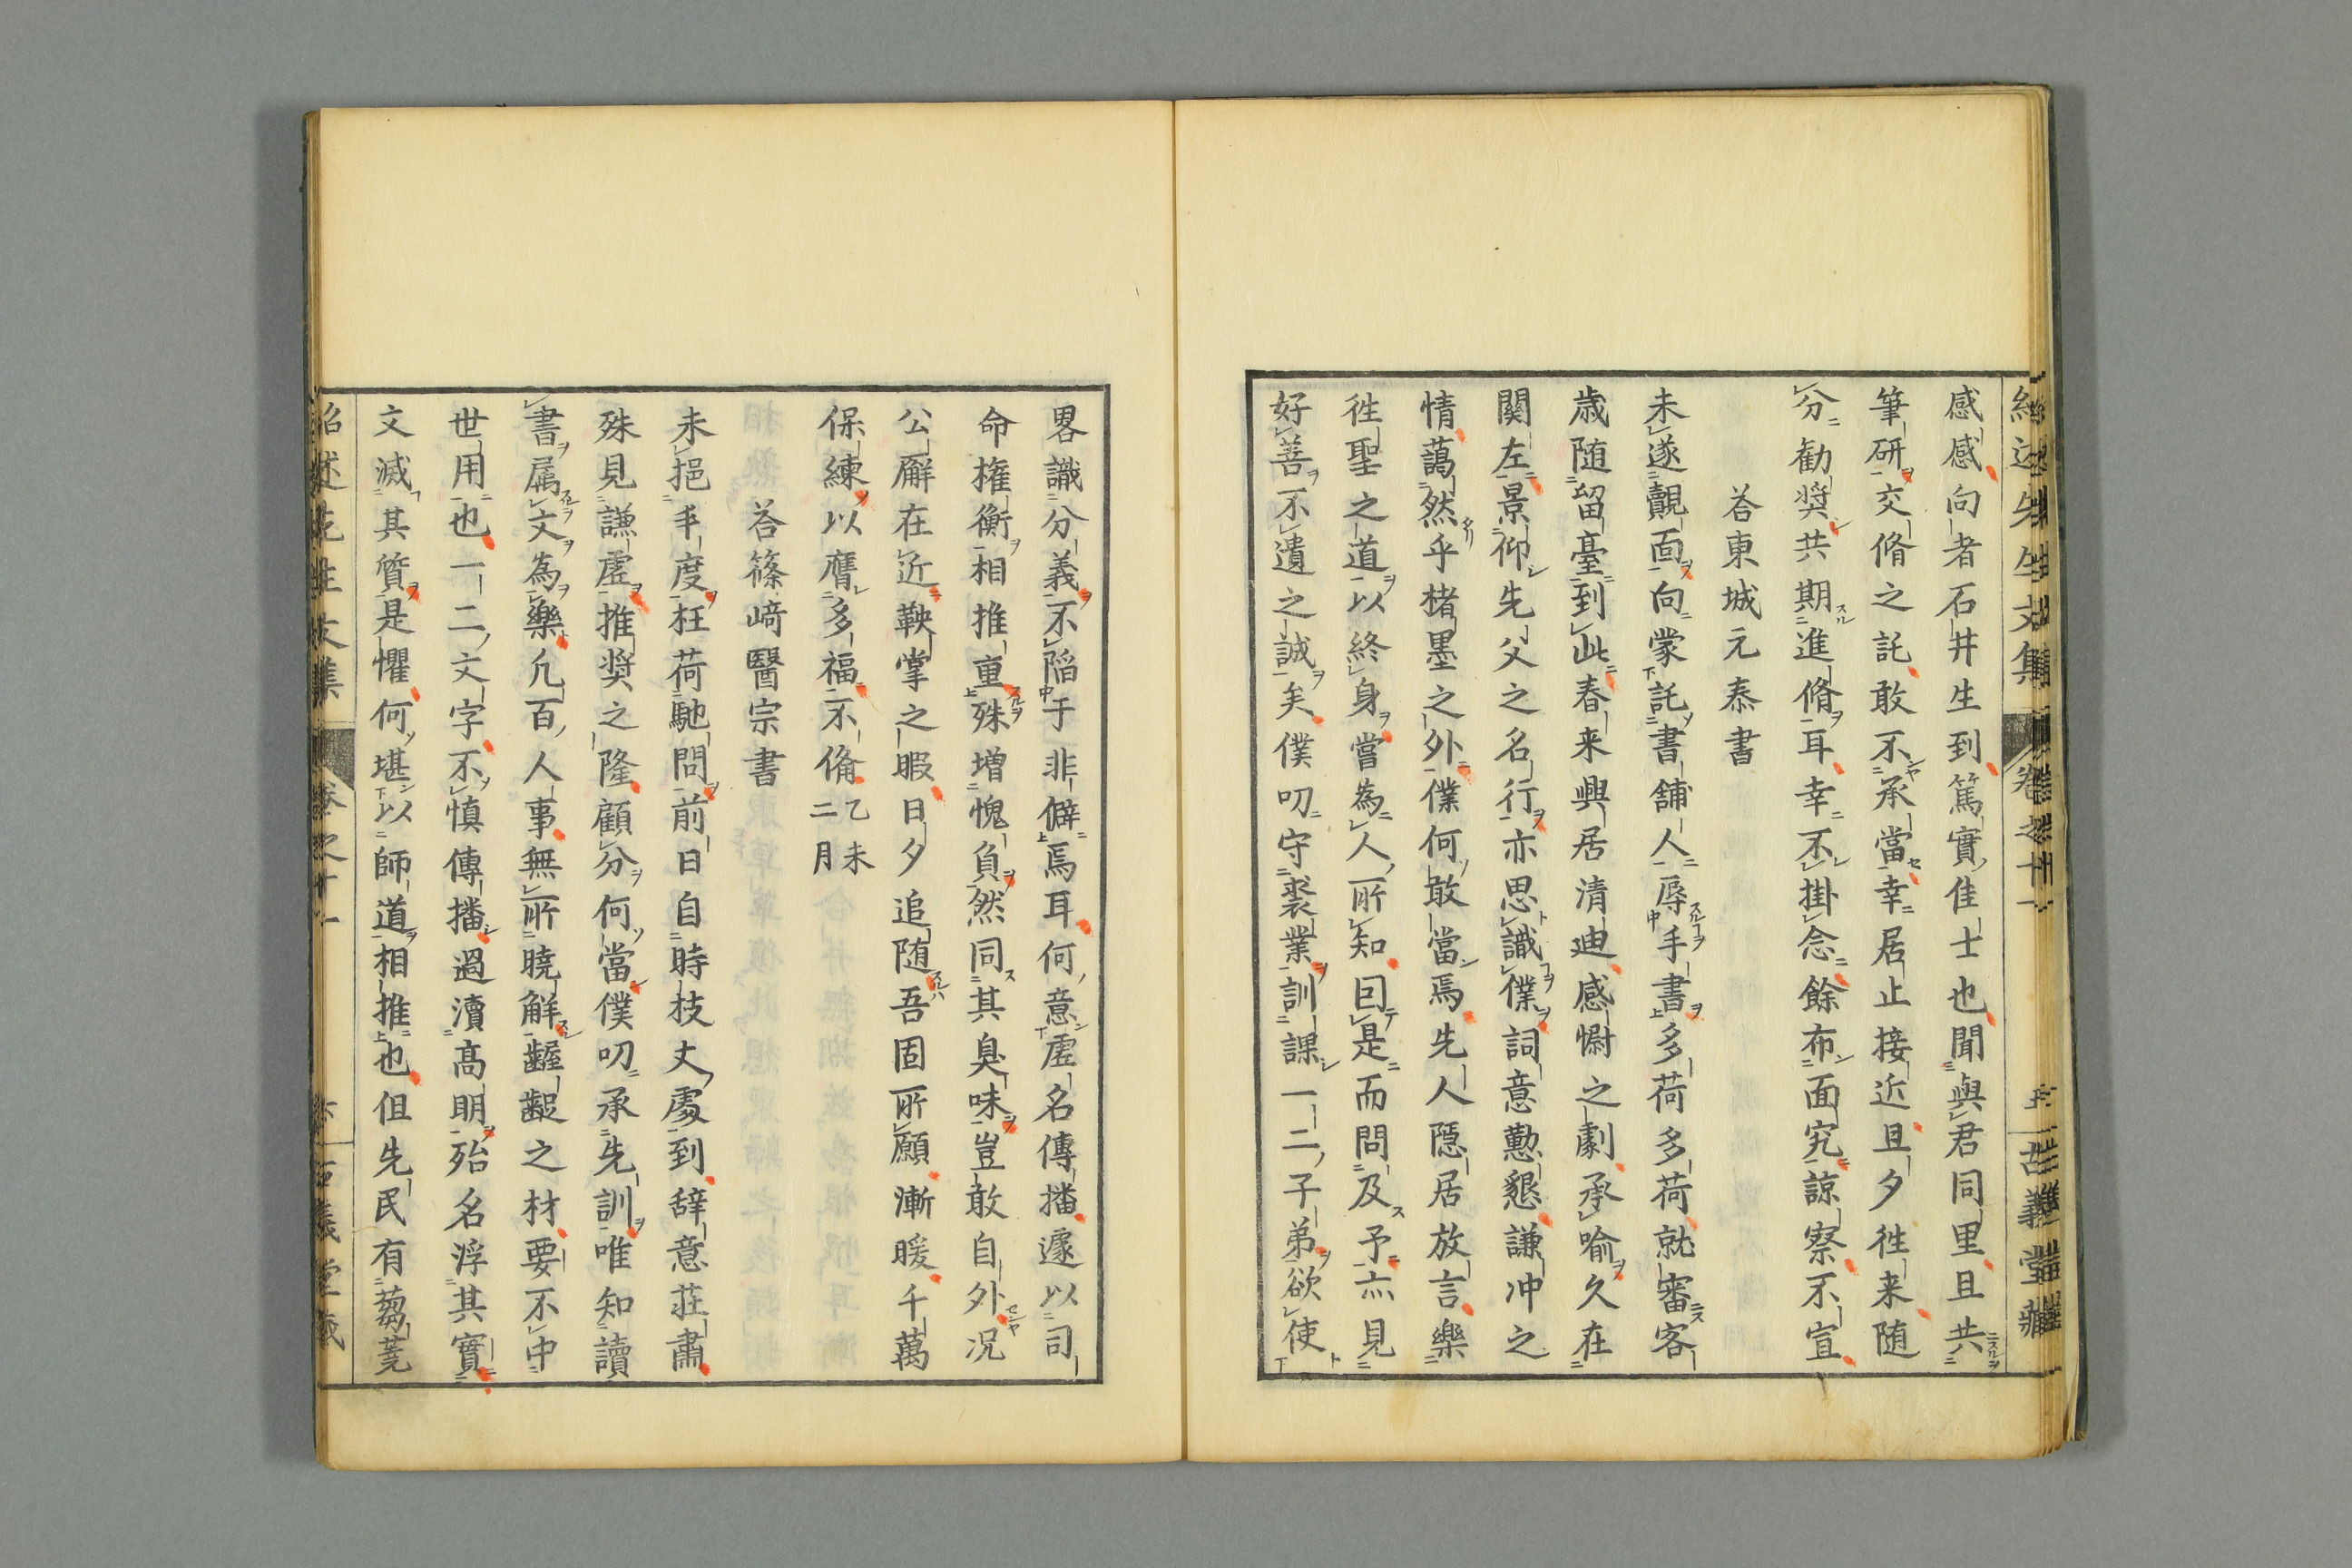 感感向者石井生到篤實佳士也聞與君同里且共
筆研交脩之託敢不承當幸居止接近旦夕徃来随
分勧奨共期進脩耳幸不掛念餘布面究諒察不宣
荅東城元泰書
未遂覿面向蒙託書舗人辱手書多荷多荷就審客
歳随留臺到此春来興居清廸感慰之劇承喻久在
関左景仰先父之名行亦思識僕詞意懃懇謙冲之
情藹然乎楮墨之外僕何敢當焉先人隠居放言樂
徃聖之道以終身嘗為人所知囙是而問及予亦見
好善不遺之誠矣僕叨守裘業訓課一二子弟欲使
畧識分義不陷于非僻焉耳何意虚名傳播遽以司
命権衡相推重殊増愧負然同其臭味豈敢自外况
公廨在近鞅掌之暇日夕追随吾固所願漸暖千萬
保練以膺多福不備 乙未二月
荅篠﨑醫宗書
未挹丰度枉荷馳問前日自時枝丈處到辞意荘肅
殊見謙虚推奨之隆顧分何當僕叨承先訓唯知讀
書属文為樂凢百人事無所曉解齷齪之材要不中
世用也一二文字不慎傳播過瀆髙明殆名浮其實
文滅其質是懼何堪以師道相推也但先民有蒭蕘
紹述先生文集
卷之十一
古義堂藏